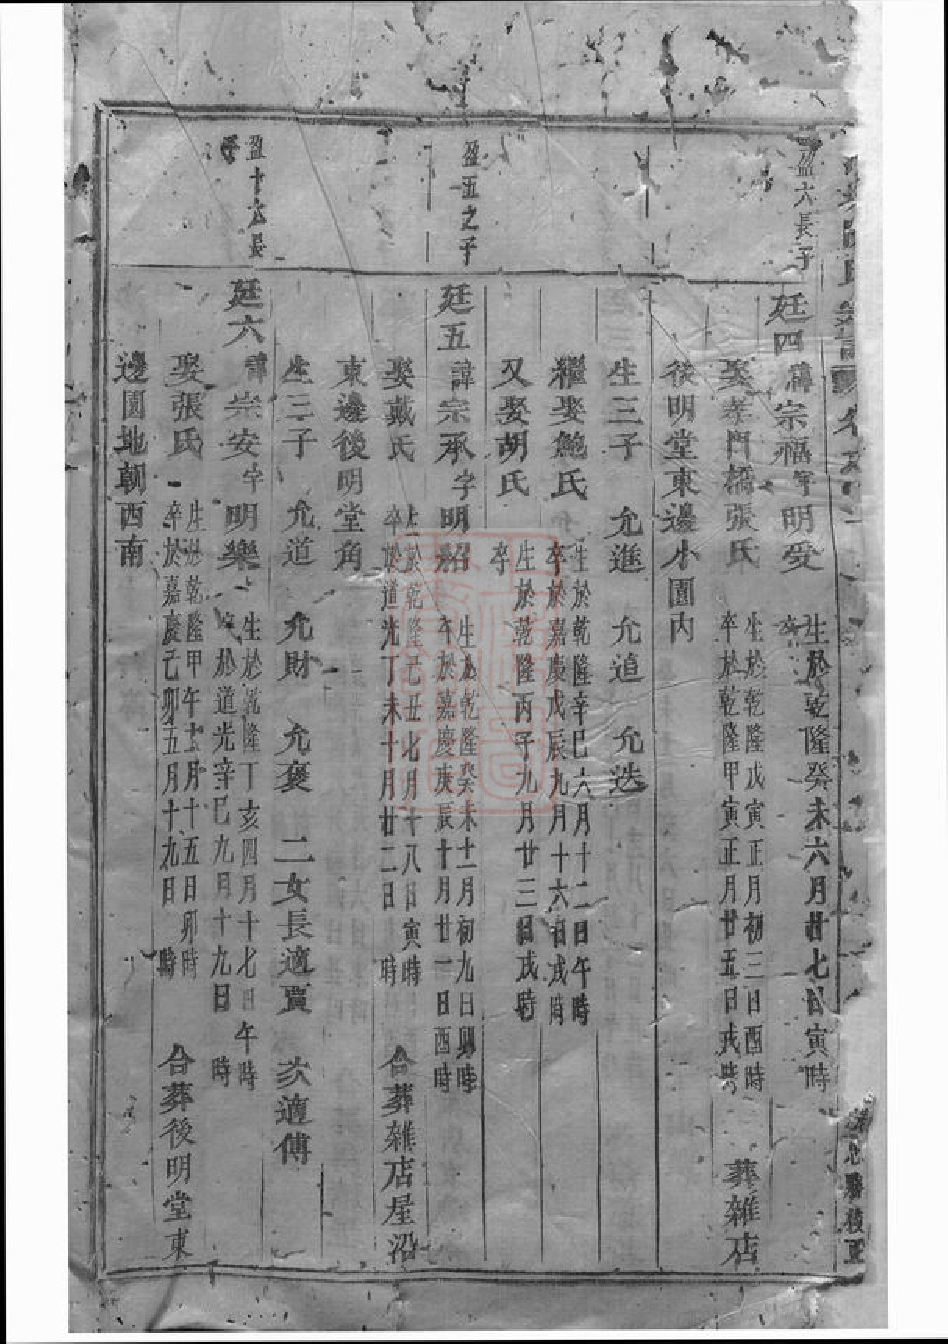 盈六長子
廷四
諱宗福字明受
生於乾隆癸未六月廿七日寅時
卒
娶孝門橋張氏
生於乾隆戊寅正月初三日酉時
卒於乾隆甲寅正月廿五日戌時
葬雜店
後明堂東邊小園內
生三子 允進 允追 允迭
繼娶鮑氏
生於乾隆辛巳六月十二日午時
卒於嘉慶戊辰九月十六日戌時
又娶胡氏
生於乾隆丙子九月廿三日戌時
卒
盈五之子
廷五
諱宗承字明紹
生於乾隆癸未十一月初九日卯時
卒於嘉慶庚辰十月廿一日酉時
娶戴氏
生於乾隆己丑七月十八日寅時
卒於道光丁未十月廿二日 時
合葬雜店屋沿
東邊後明堂角
生三子 允道 允財 允褒 二女長適賈 次適傅
盈十六長子
廷六
諱宗安字明樂
生於乾隆丁亥四月十七日午時
卒於道光辛巳九月十九日 時
娶張氏
生於乾隆甲午十二月十五日卯時
卒於嘉慶己卯五月十九日 時
合葬後明堂東
邊園地朝西南